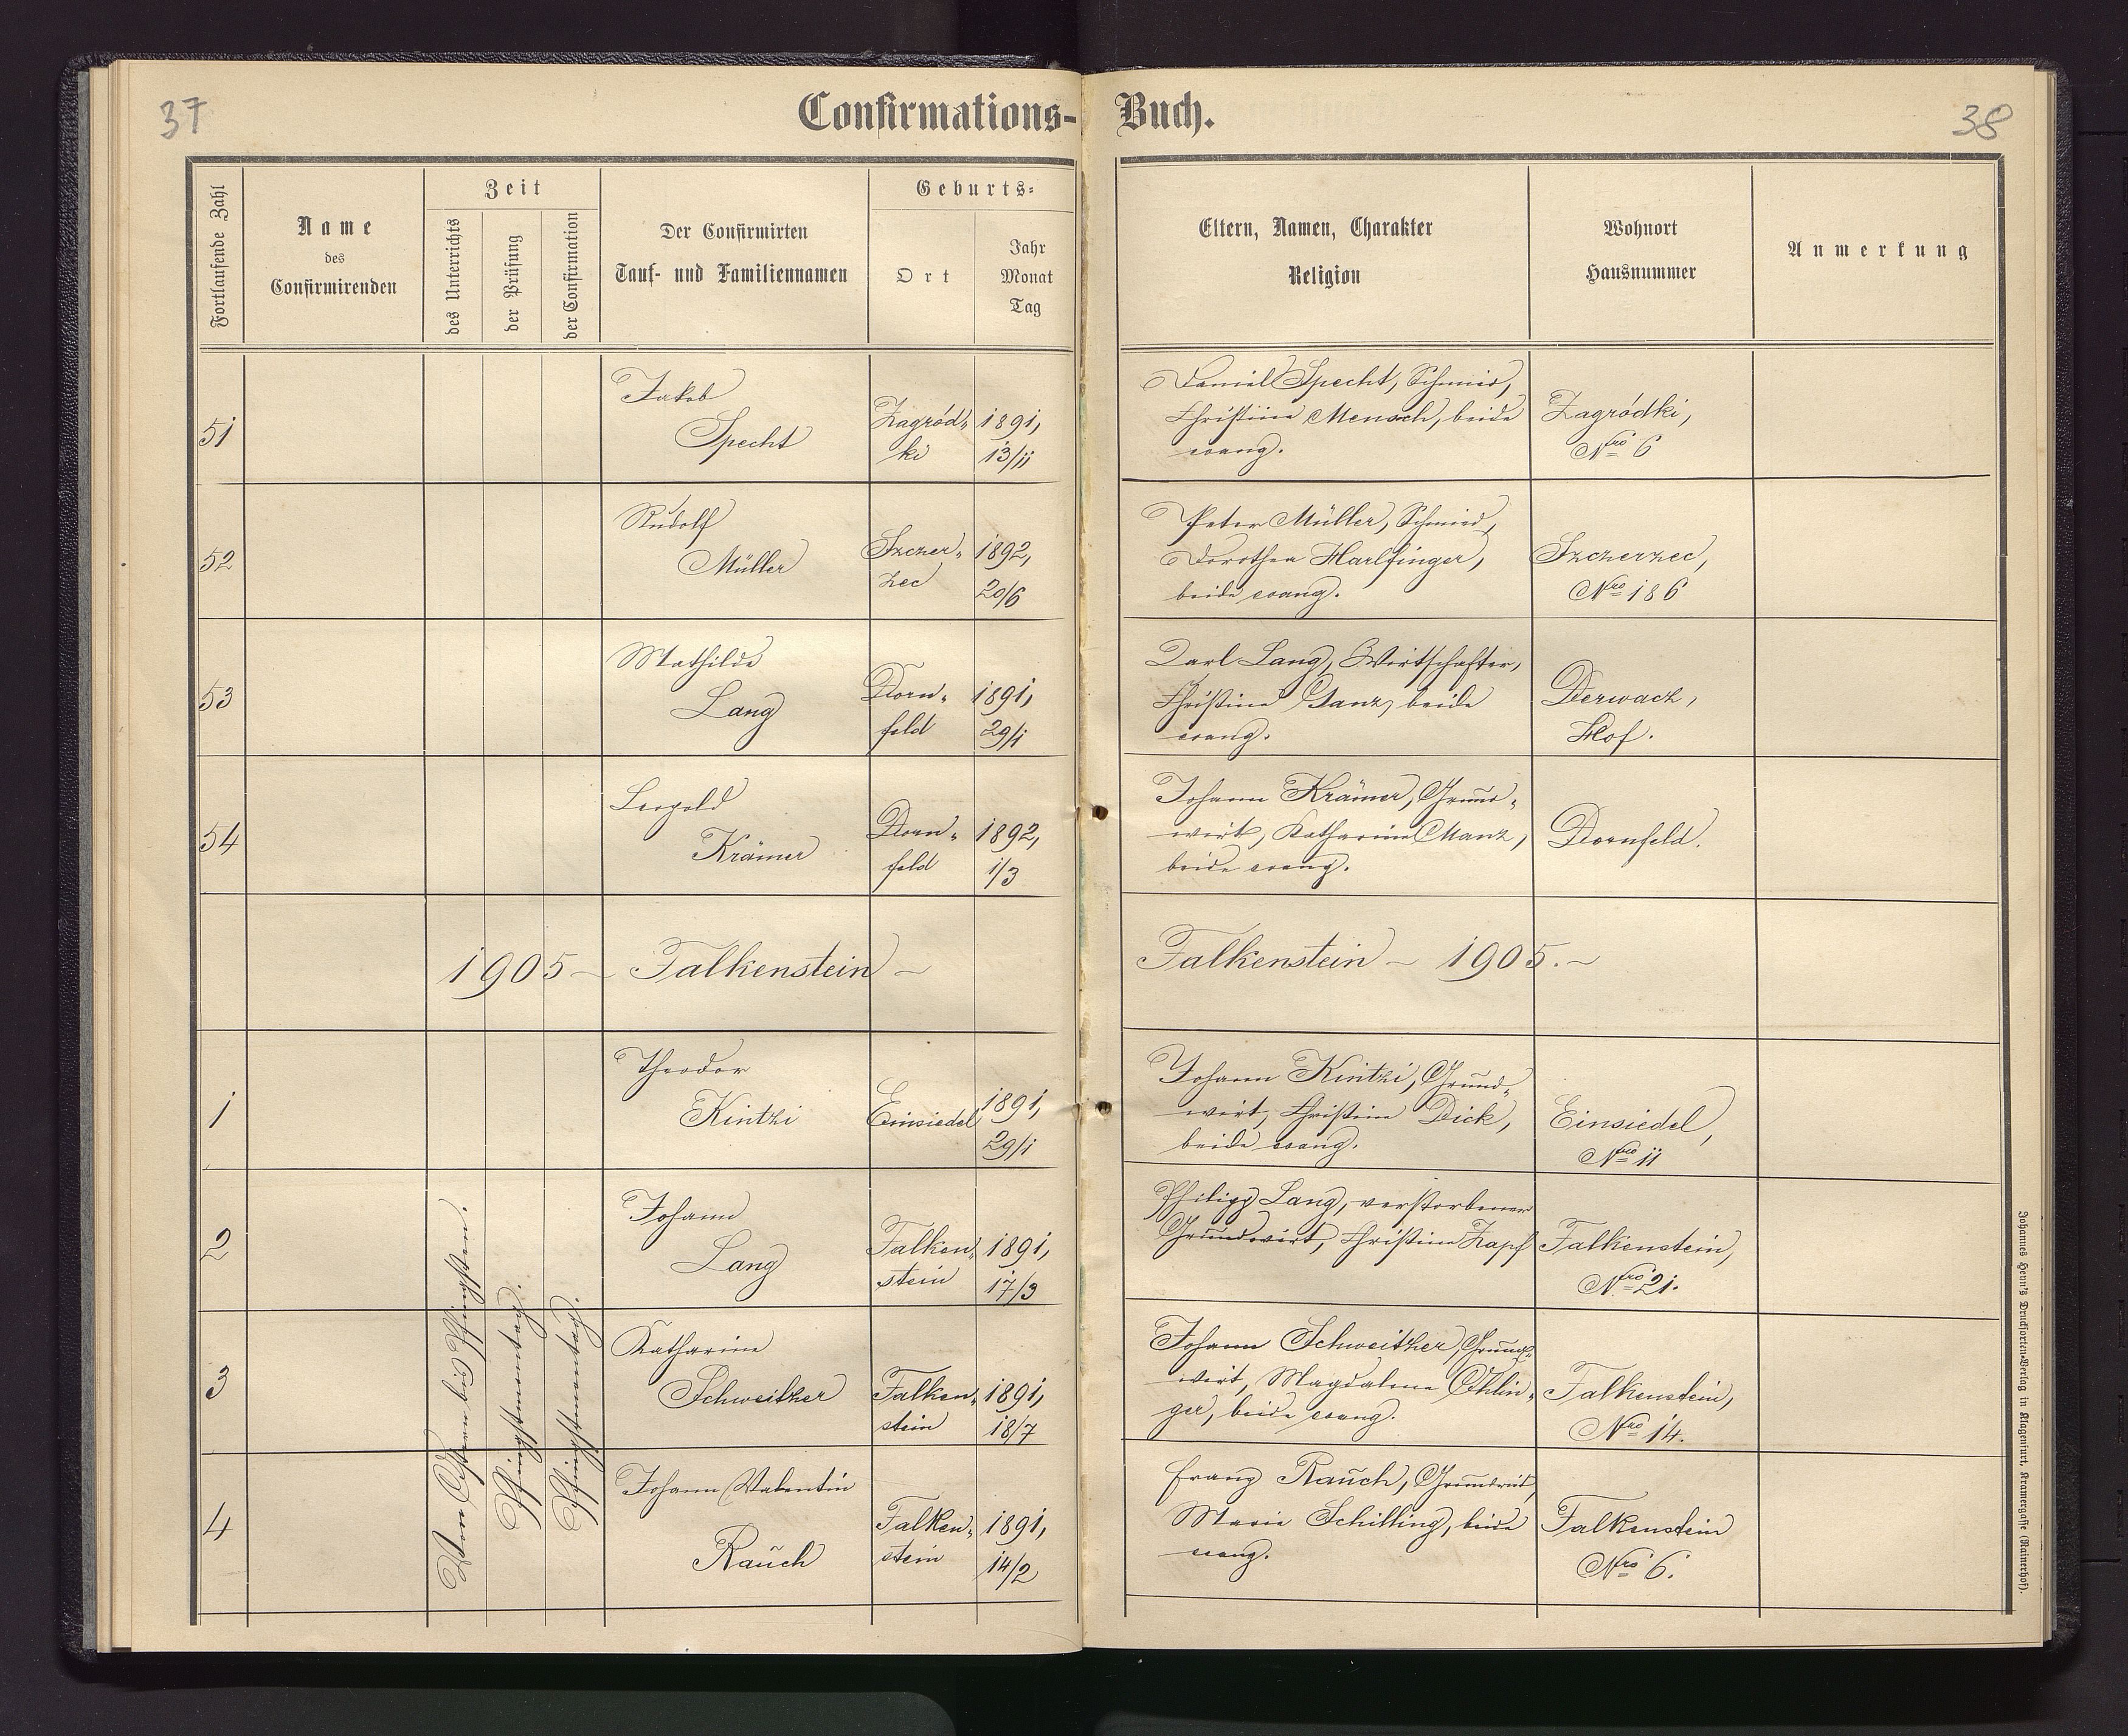 37
Confirmations-
Fortlaufende Zahl
Name
des
Confirmirenden
Zeit
des Unterrichts
der Prüfung
der Confirmation
Der Confirmirten
Tauf- und Familiennamen
Geburts-
Ort
Jahr
Monat
Tag
51
Jakob
Specht
Zagród-
ki
1891,
13/11
52
Rudolf
Müller
Szczer-
zec
1892,
20/6
53
Mathilde
Lang
Dorn-
feld
1891,
29/1
54
Leopold
Krämer
Dorn-
feld
1892,
1/3
1905 - Falkenstein -
1
Theodor
Kintzi
Einsiedel
1891,
29/1
2
Johann
Lang
Falken-
stein
1891,
17/3
3
Katharine
Schweitzer
Falken-
stein
1891,
18/7
4
Johann Valentin
Rauch
Falken-
stein
1891,
14/2
Von Ostern bis Pfingsten.
Pfingstmontag.
Pfingstmontag.
Buch.
38
Eltern, Namen, Charakter
Religion
Wohnort
Hausnummer
Anmerkung
Daniel Specht, Schmied,
Christine Mensch, beide
evang.
Zagródki,
Nro 6
Peter Müller, Schmied,
Dorothea Harlfinger,
beide evang.
Szczerzec,
Nro 186
Karl Lang, Wirtschafter,
Christine Ganz, beide
evang.
Derwacz,
Hof.
Johann Krämer, Grund-
wirt, Katharina Manz,
beide evang.
Dornfeld.
Falkenstein - 1905. -
Johann Kintzi, Grund-
wirt, Christine Dick,
beide evang.
Einsiedel,
Nro 11
Philipp Lang, verstorbener
Grundwirt, Christine Zapf
Falkenstein,
Nro 21.
Johann Schweitzer, Grund-
wirt, Magdalena Öhlin-
ger, beide evang.
Falkenstein,
Nro 14.
Franz Rauch, Grundwirt,
Maria Schilling, beide
evang.
Falkenstein
Nro 6.
Johannes Heyn's Drucksorten-Verlag in Klagenfurt, Kramergasse (Rainerhof).